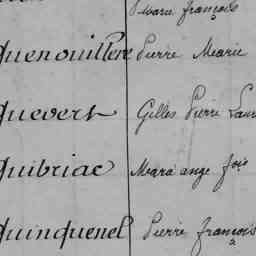 Marie françois
Quenouillere Pierre Marie
Quevert Gilles Pierre Laur
Quibriac Mara ange fois
Quinquenel Pierre françois